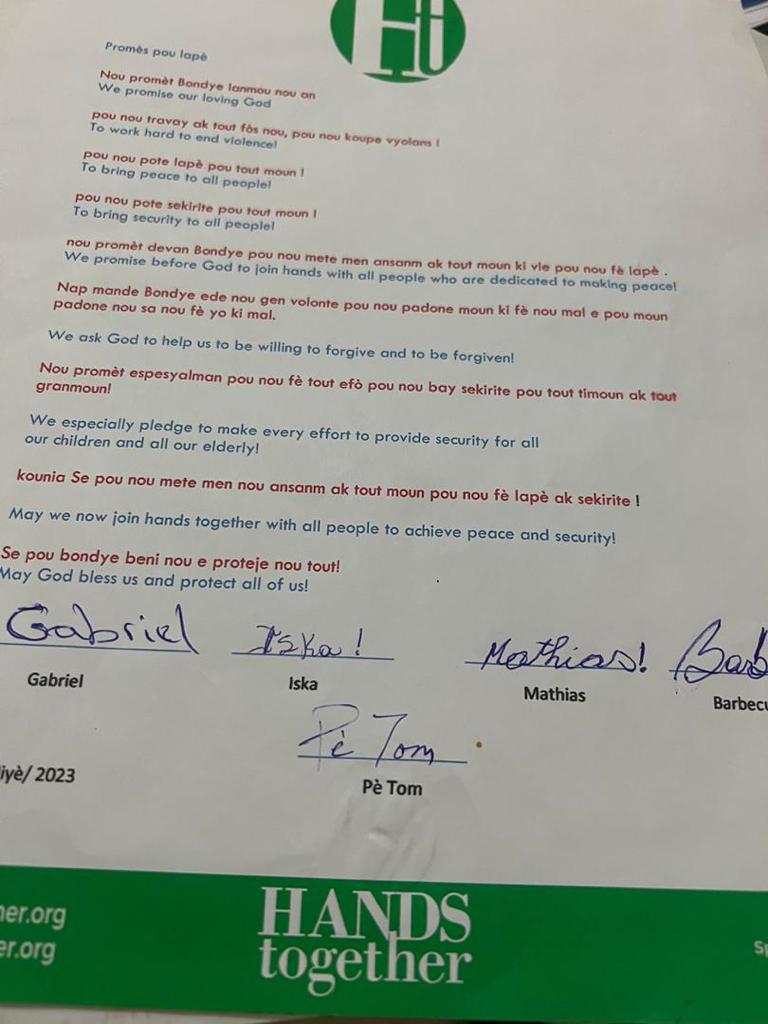 Ht
Promès pou lapè
Nou promèt Bondye lanmou nou an
We promise our loving God
pou nou travay ak tout fòs nou, pou nou koupe vyolans !
To work hard to end violence!
pou nou pote lapè pou tout moun !
To bring peace to all people!
pou nou pote sekirite pou tout moun !
To bring security to all people!
nou promèt devan Bondye pou nou mete men ansanm ak tout moun ki vle pou nou fè lapè .
We promise before God to join hands with all people who are dedicated to making peace!
Nap mande Bondye ede nou gen volonte pou nou padone moun ki fè nou mal e pou moun
padone nou sa nou fè yo ki mal.
We ask God to help us to be willing to forgive and to be forgiven!
Nou promèt espesyalman pou nou fè tout efò pou nou bay sekirite pou tout timoun ak tout
granmoun!
We especially pledge to make every effort to provide security for all
our children and all our elderly!
kounia Se pou nou mete men nou ansanm ak tout moun pou nou fè lapè ak sekirite !
May we now join hands together with all people to achieve peace and security!
Se pou bondye beni nou e proteje nou tout!
May God bless us and protect all of us!
Gabriel Iska! Mathias! Barb
Gabriel Iska Mathias Barbecu
Pè Tom
iyè/ 2023 Pè Tom
her.org
er.org
HANDS
together
Sp